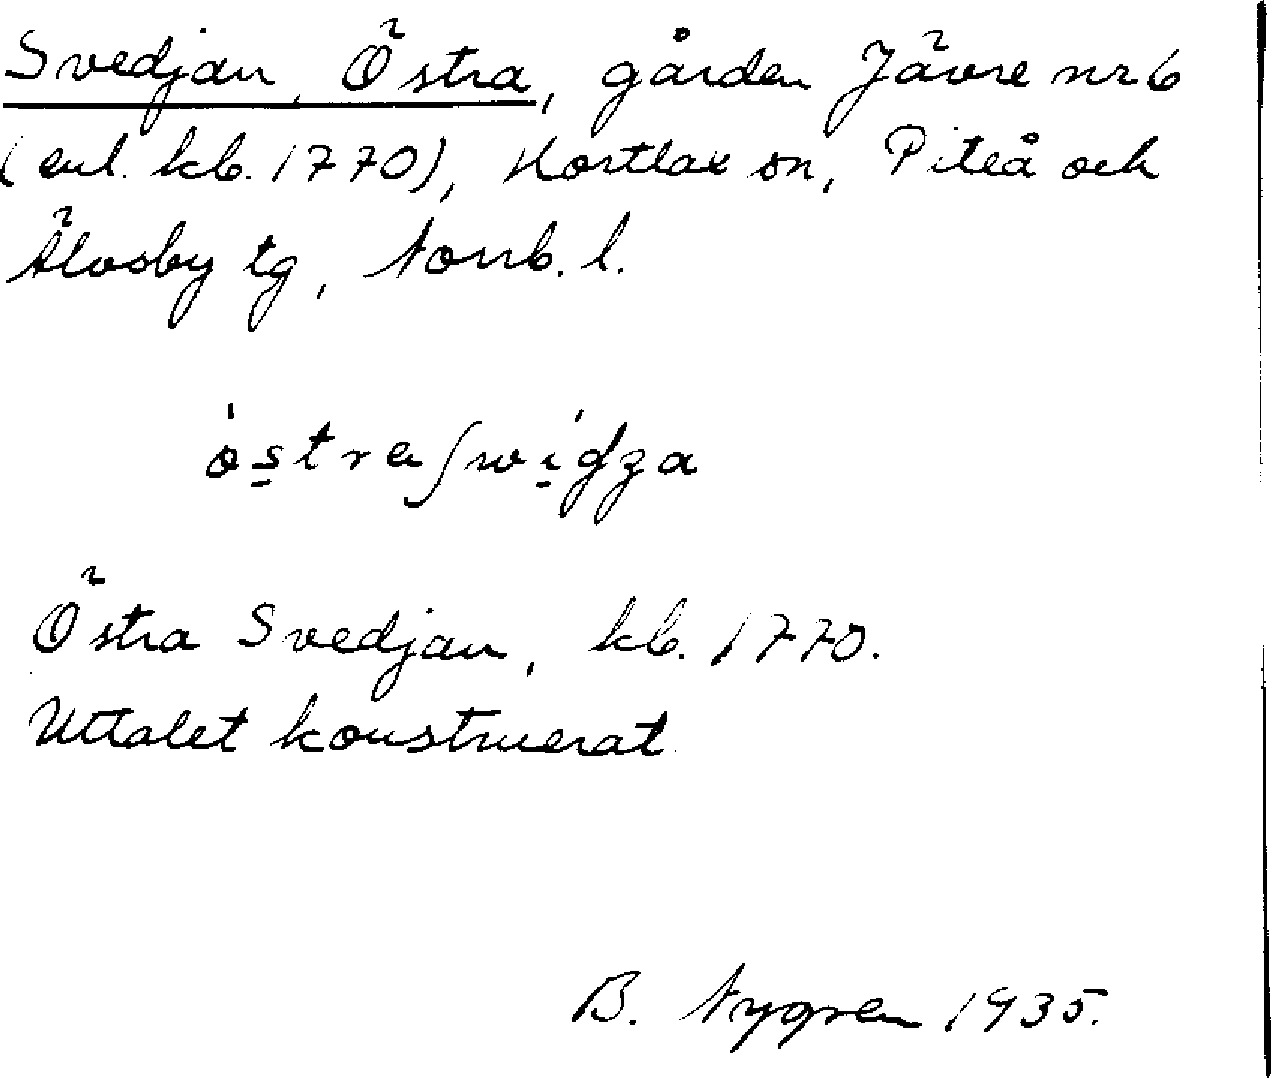 Svedjan, Östra, gården Jävre nr 6
(enl. kb. 1770), Hortlax sn, Piteå och
Älvsby tg, Norrb. l.
östra ʃwidʒa
Östra Svedjan, kb. 1770.
Uttalet konstruerat.
B. Nygren 1935.